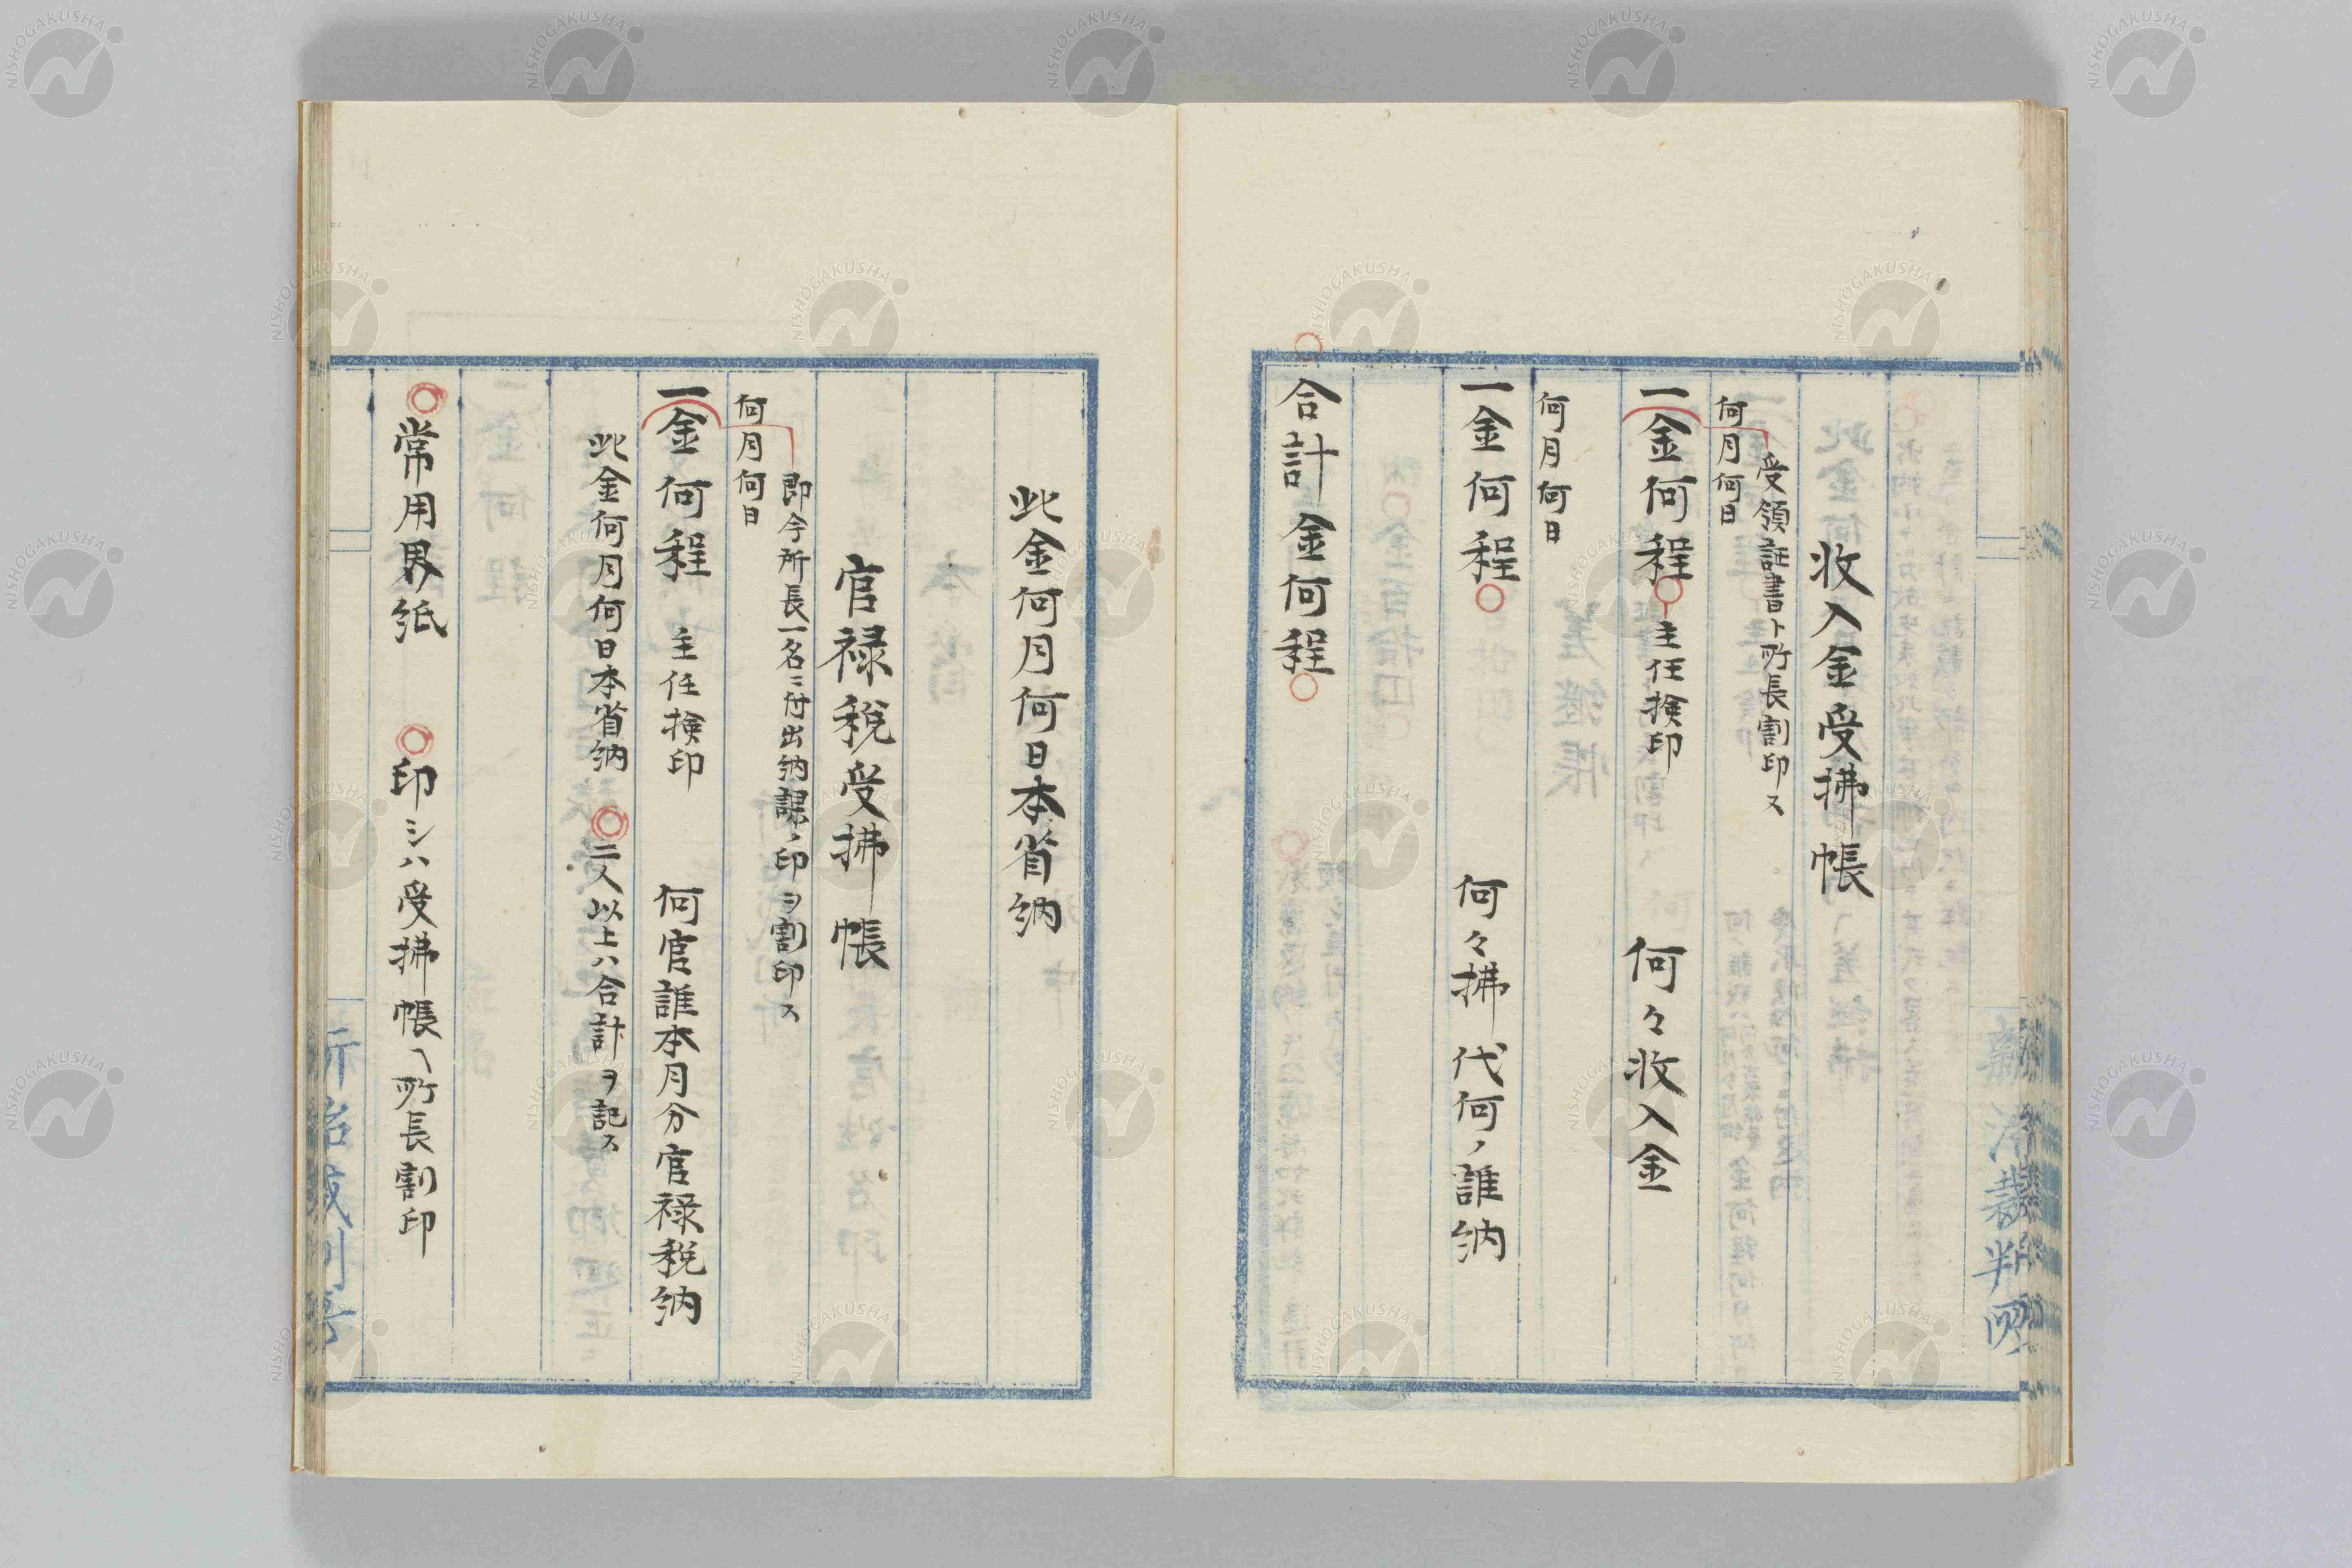 収入金受拂帳
受領証書ト所長割印ス
何月何日
一金何程○主任検印 何々収入金
何月何日
一金何程○ 何々拂代何ノ誰納
○合計金何程○
此金何月何日本省納
官禄税受拂帳
即今所長一名ニ付出納課ノ印ヲ割印ス
何月何日
一金何程 主任検印 何官誰本月分官禄税納
此金何月何日本省納 ◎二人以上ハ合計ヲ記ス
◎常用界紙 ◎印シハ受拂帳ヘ所長割印
NISHOGAKUSHA